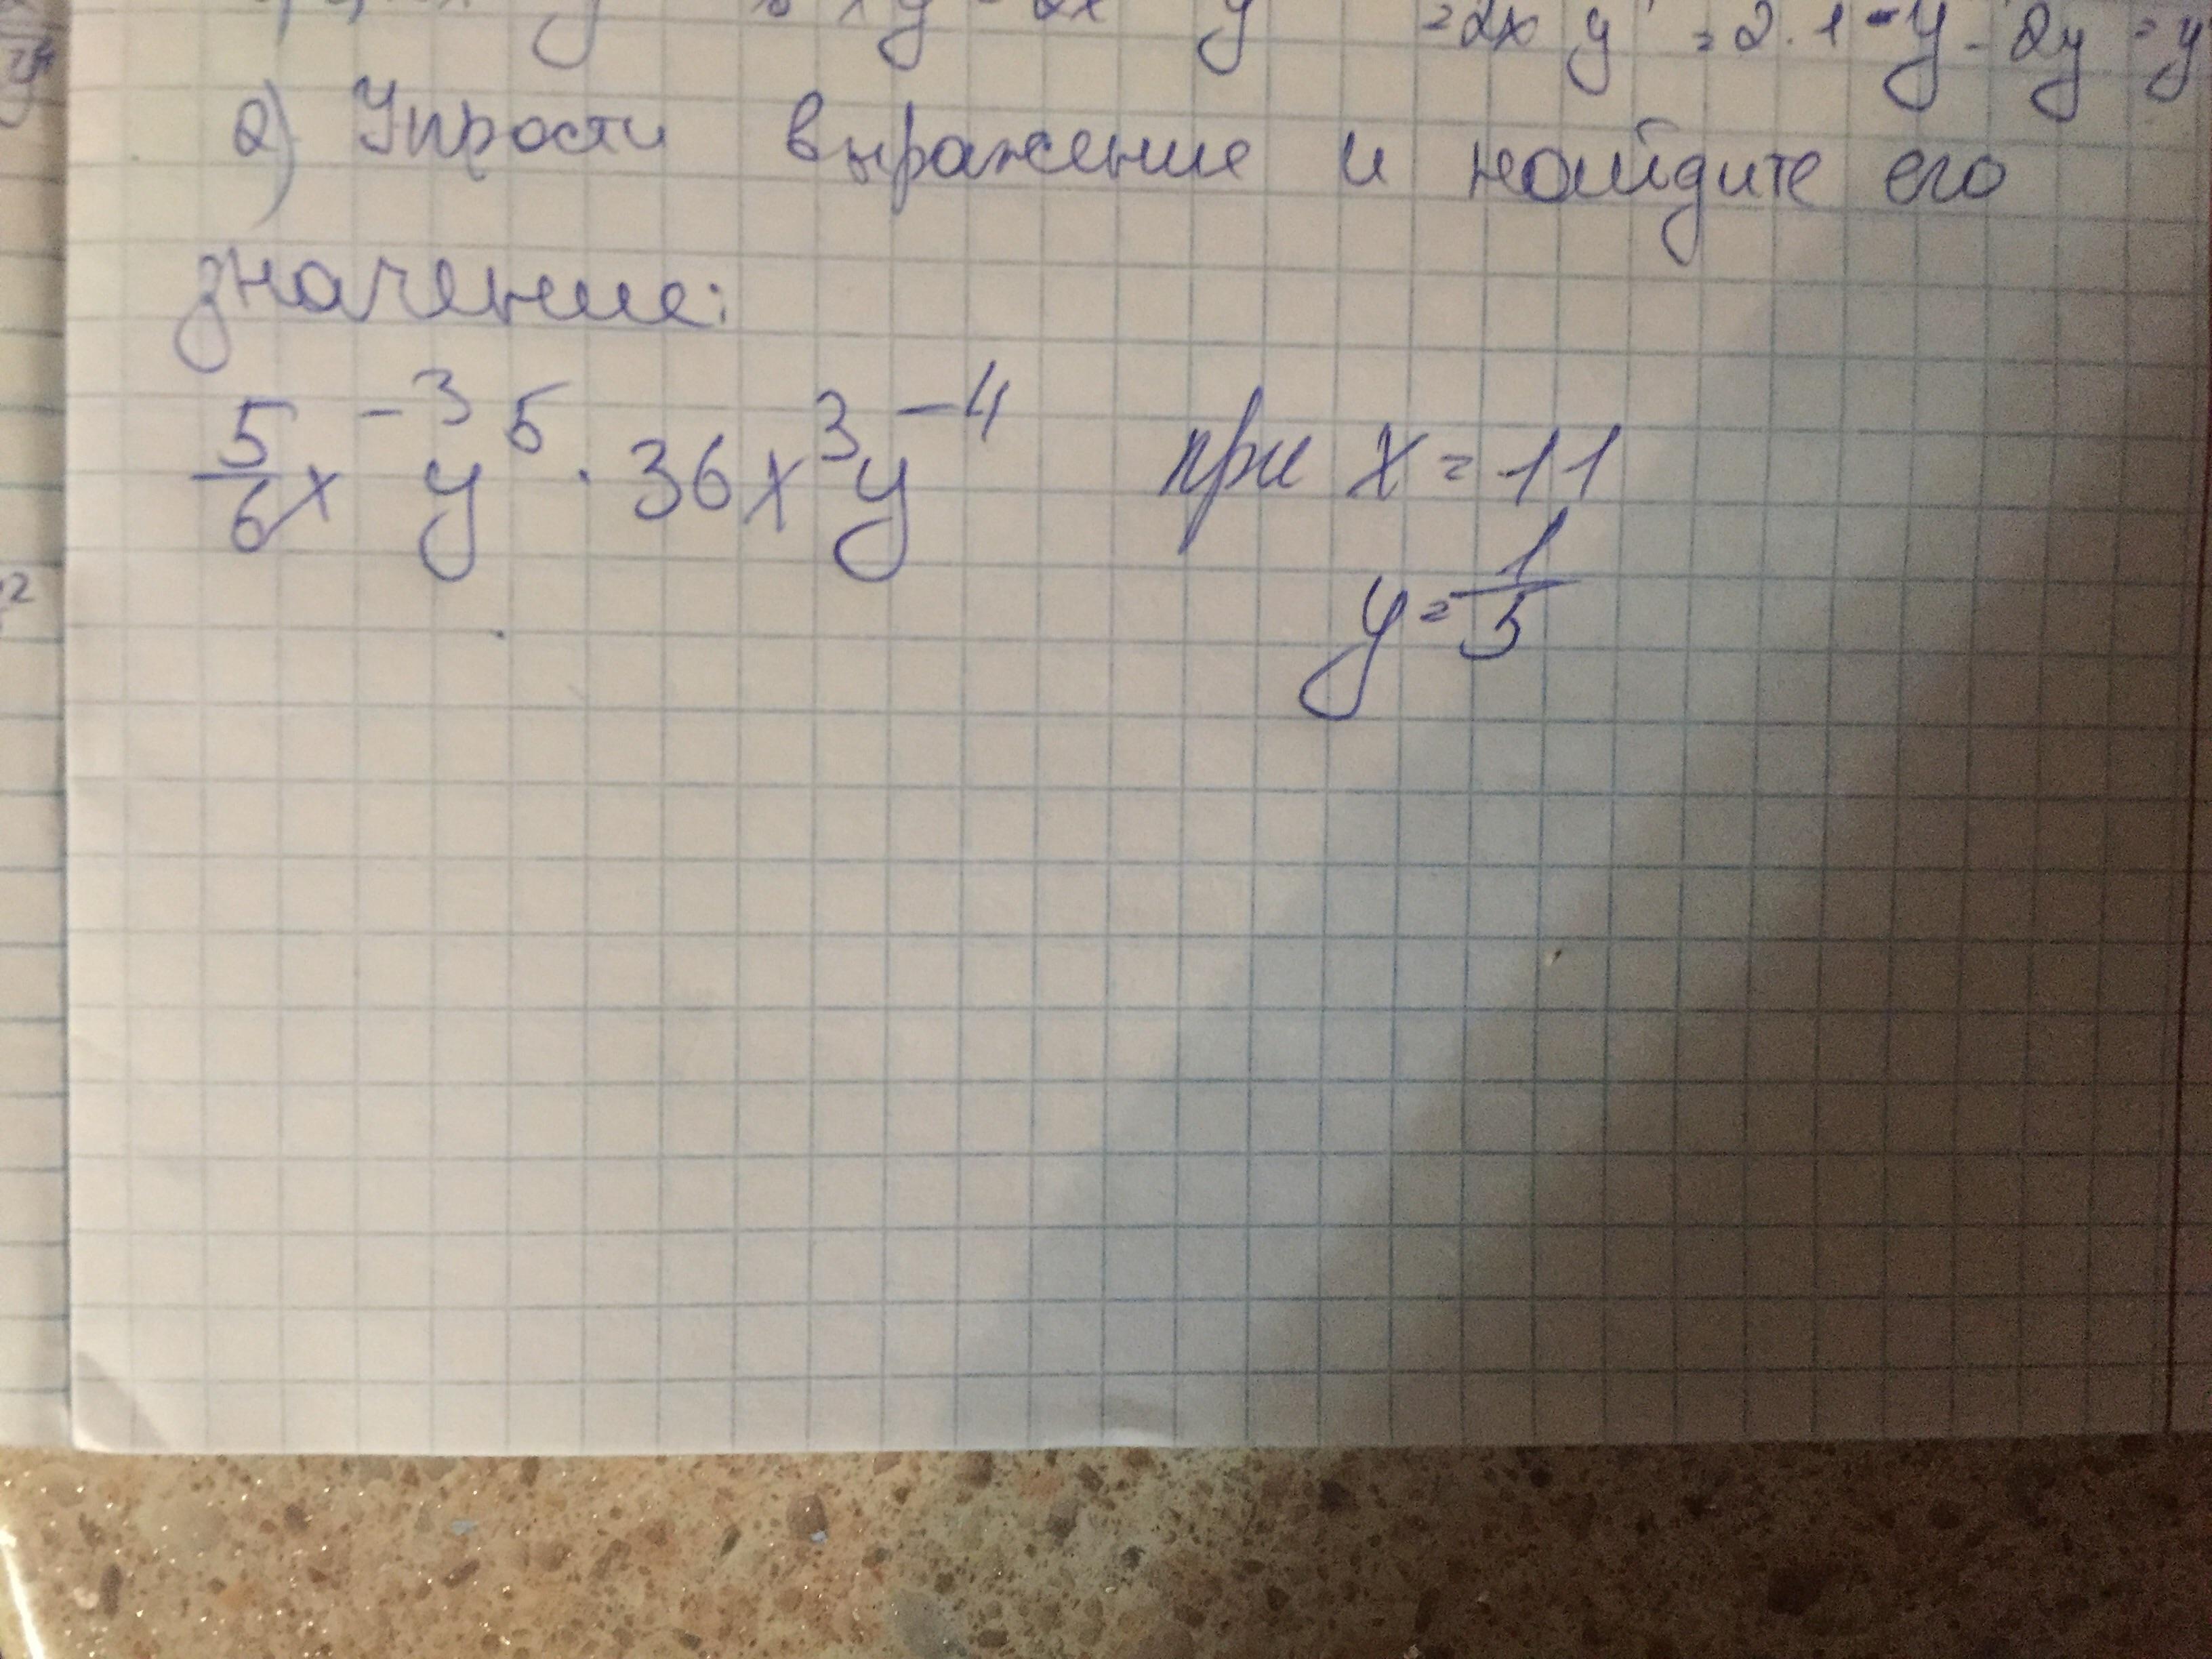 = 2x y = 2 · 1 - y - 2y = y
2) Упрости выражение и найдите его
значение:
5/6 x⁻³ y⁵ · 36 x³ y⁻⁴ при x = 11
y = 1/5